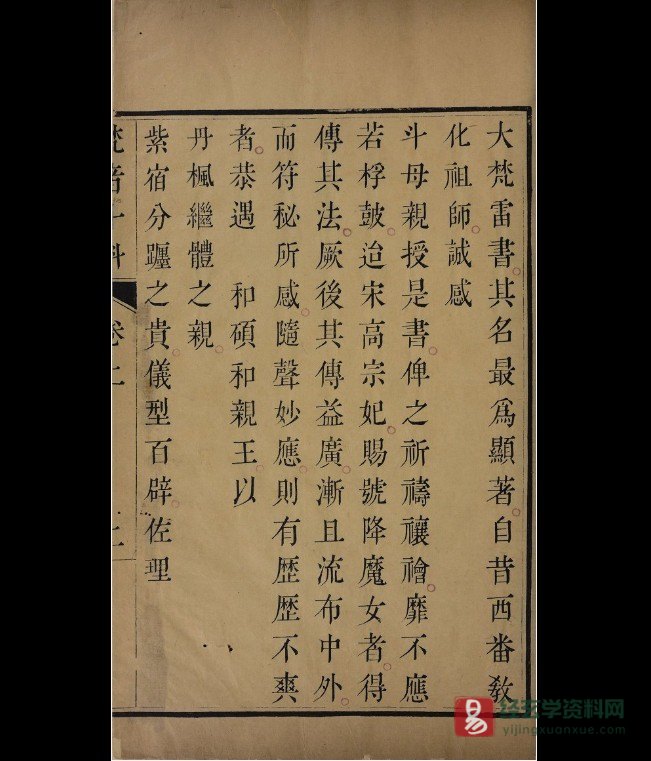 大梵雷書其名最爲顯著自昔西番教
化祖師誠感
斗母親授是書俾之祈禱禳禬靡不應
若桴鼓迨宋高宗妃賜號降魔女者得
傳其法厥後其傳益廣漸且流布中外
而符秘所感隨聲妙應則有歷歷不爽
者恭遇　和碩和親王以
丹楓繼體之親
紫宿分躔之貴儀型百辟佐理
梵音斗科
卷二
易
经玄学资料网
yijingxuanxue.com